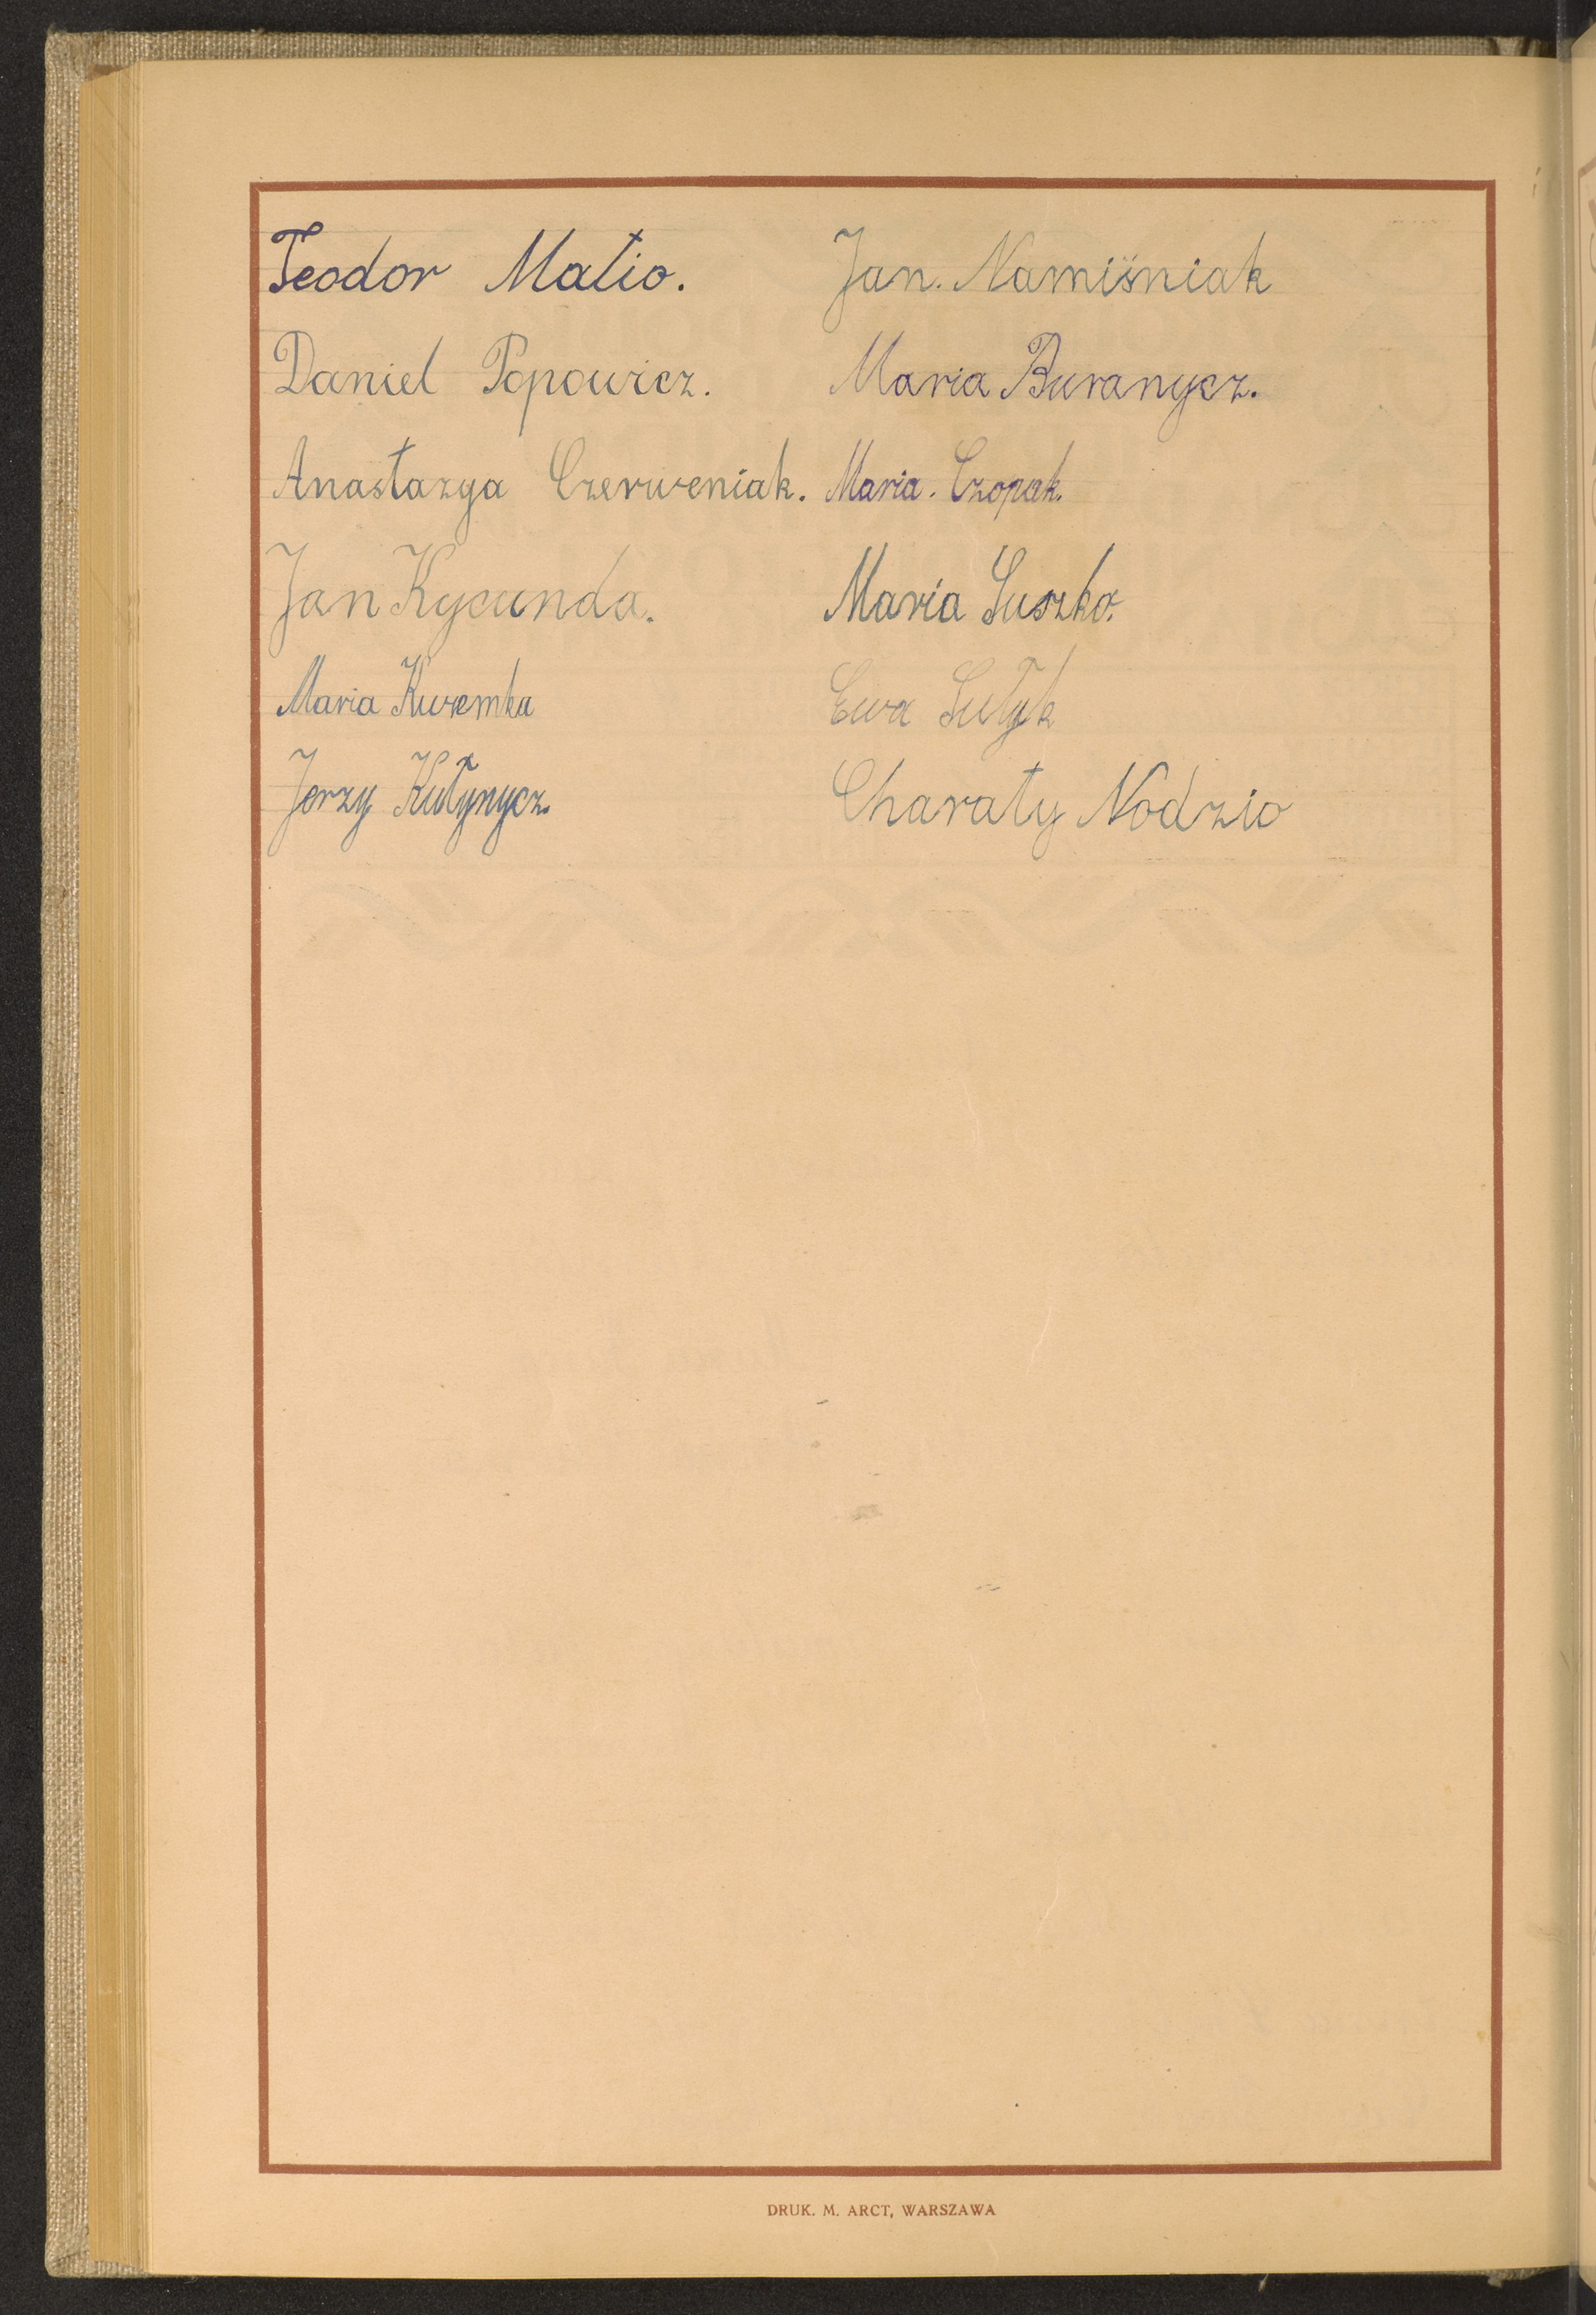 Teodor Matio.
Daniel Popowicz.
Anastazya Czerweniak.
Jan Kycunda.
Maria Kuremka
Jerzy Kutynycz.
Jan. Namiśniak
Maria Buranycz.
Maria. Czopak.
Maria Suszko.
Ewa Sutyk
Charaty Nodzio
DRUK. M. ARCT, WARSZAWA